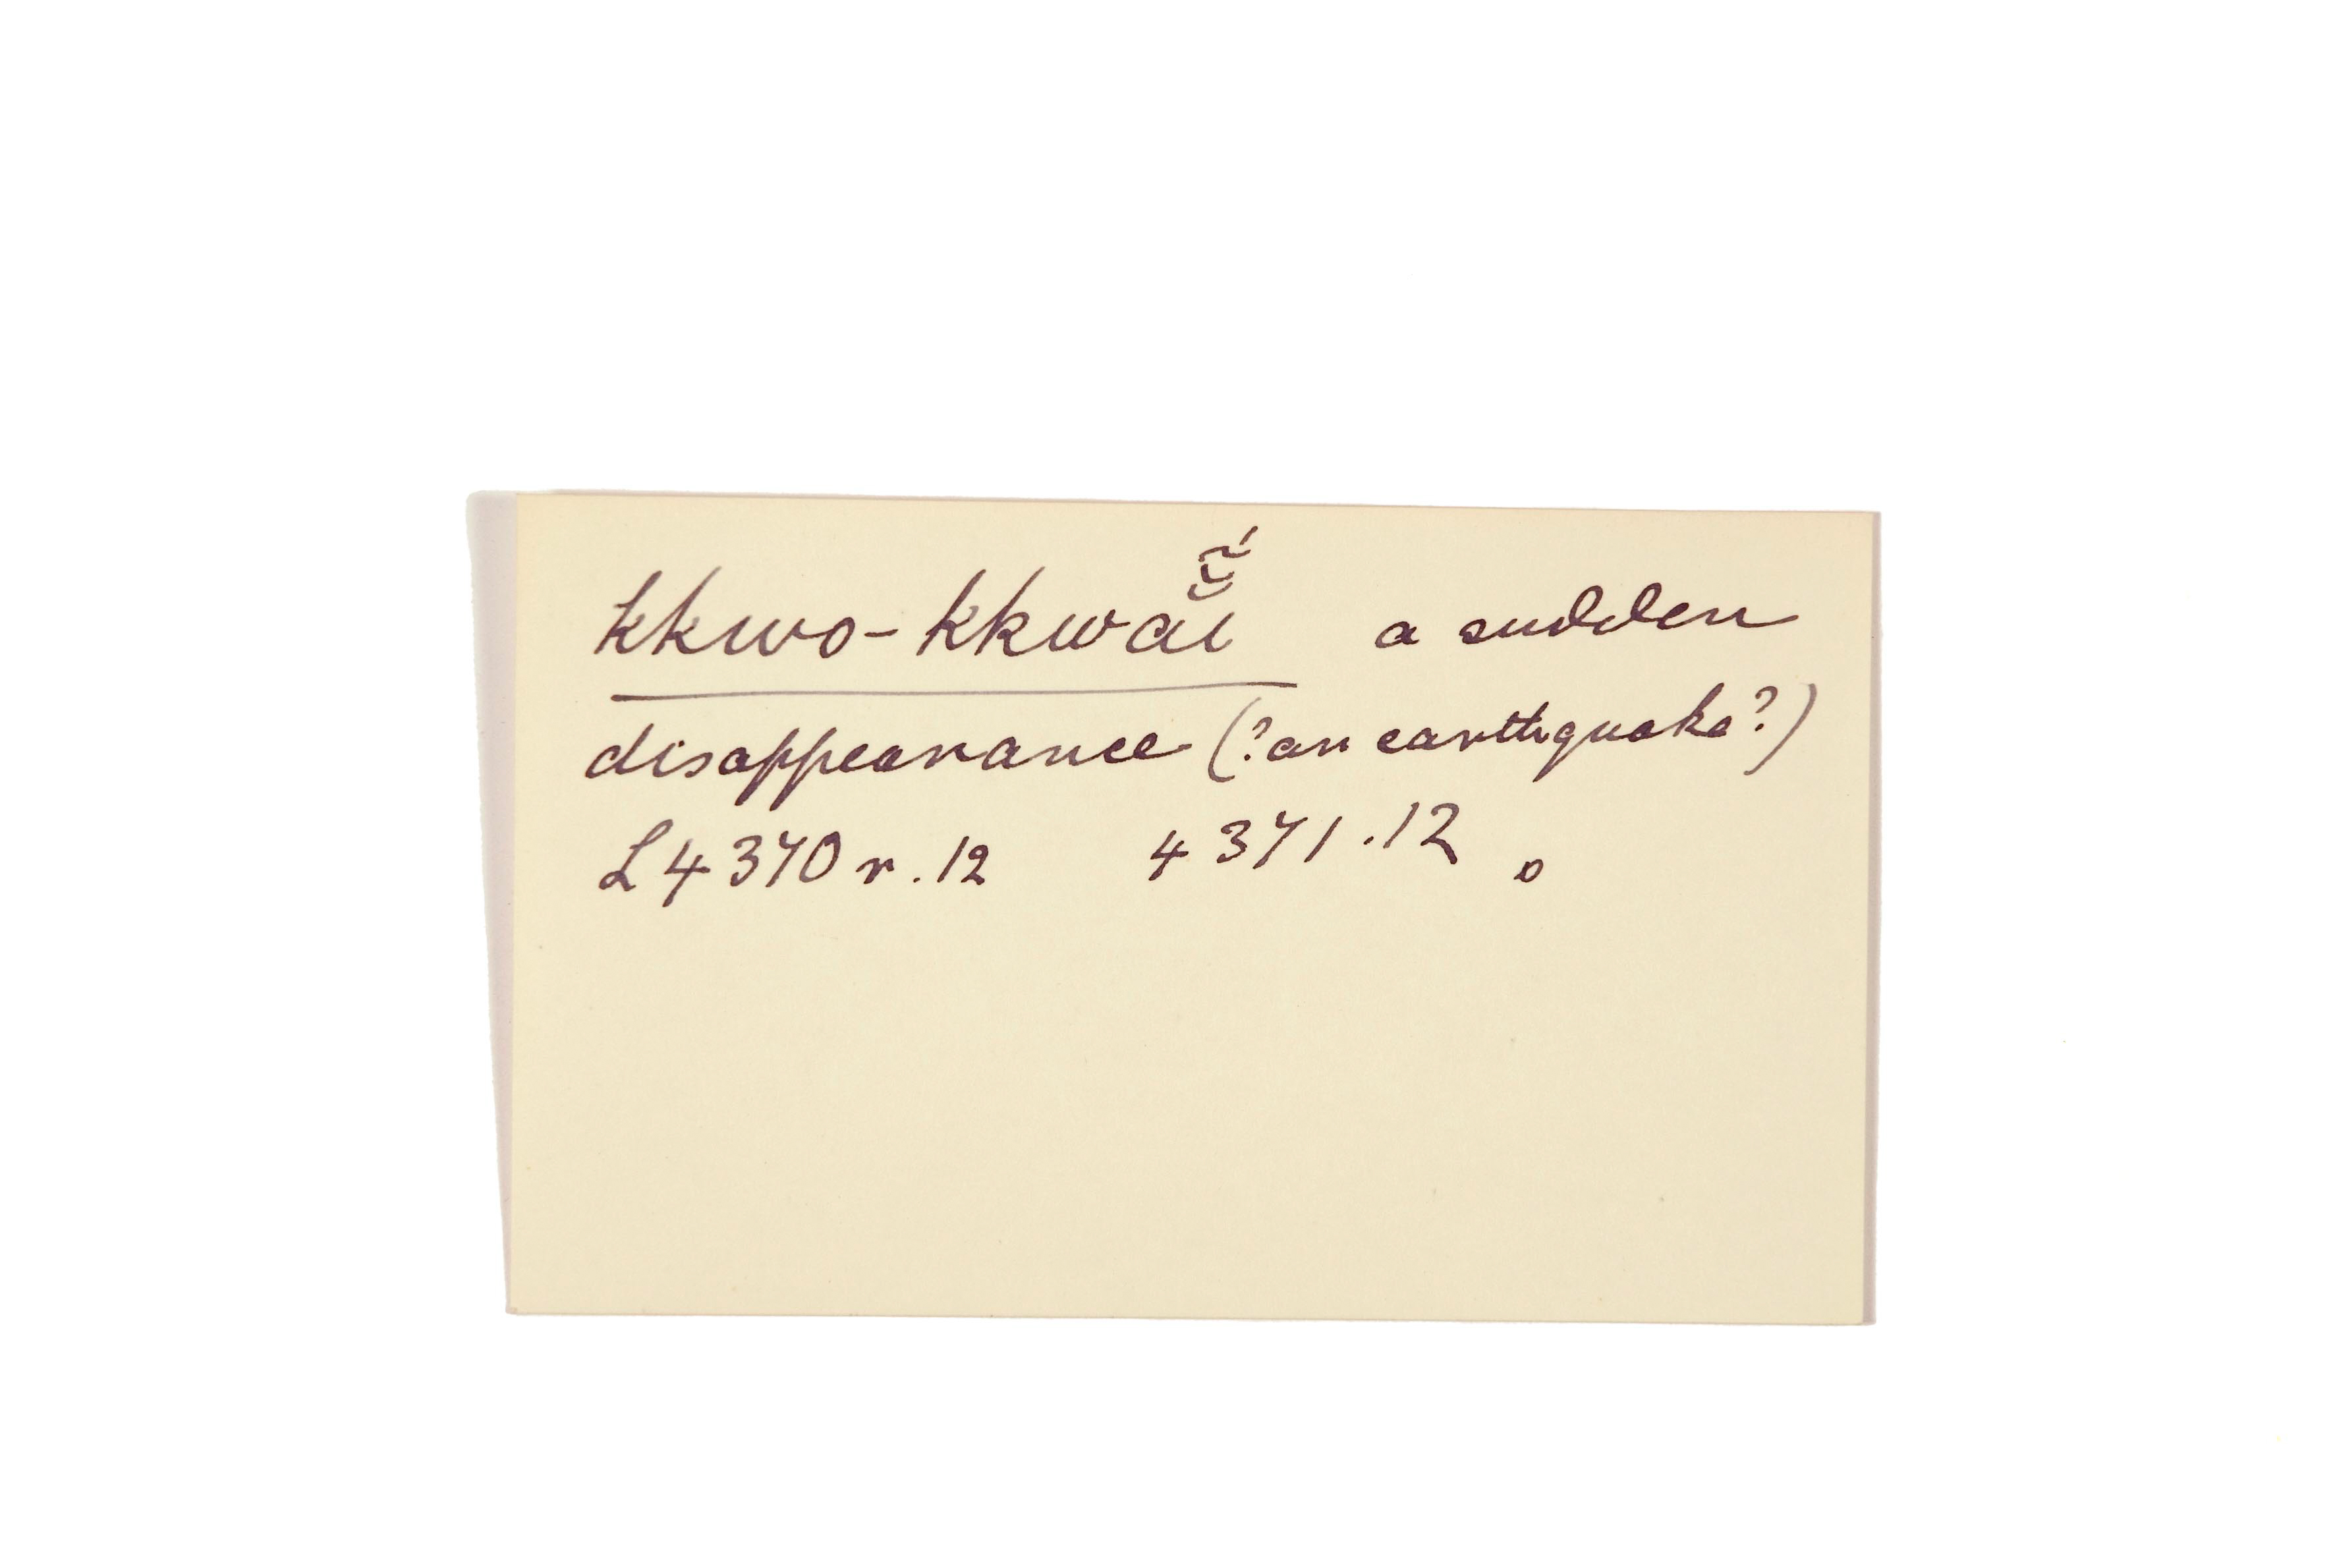 kkwo-kkwãĭ́ a sudden
disappearance (?an earthquake?)
L4370 r. 12 4371.12 o